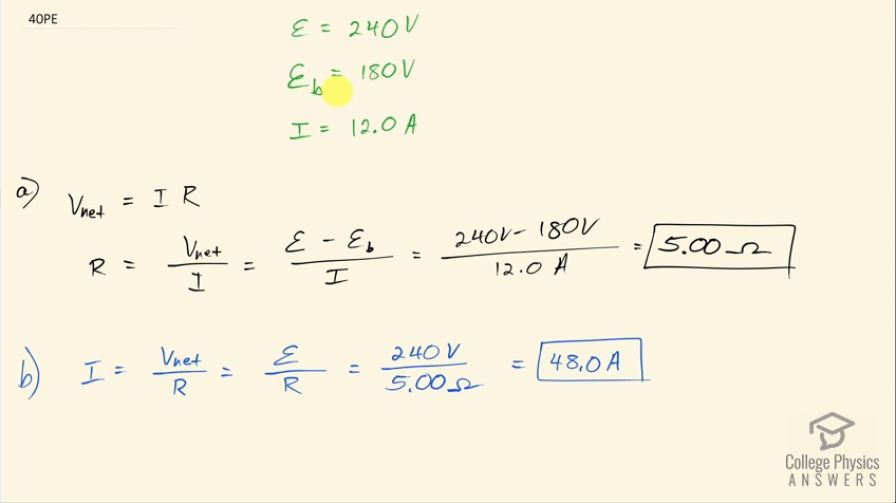 40PE
ε = 240V
ε_b = 180V
I = 12.0 A
a) V_net = I R
R = V_net / I = (ε - ε_b) / I = (240V - 180V) / 12.0 A = 5.00 Ω
b) I = V_net / R = ε / R = 240 V / 5.00 Ω = 48.0 A
College Physics
ANSWERS